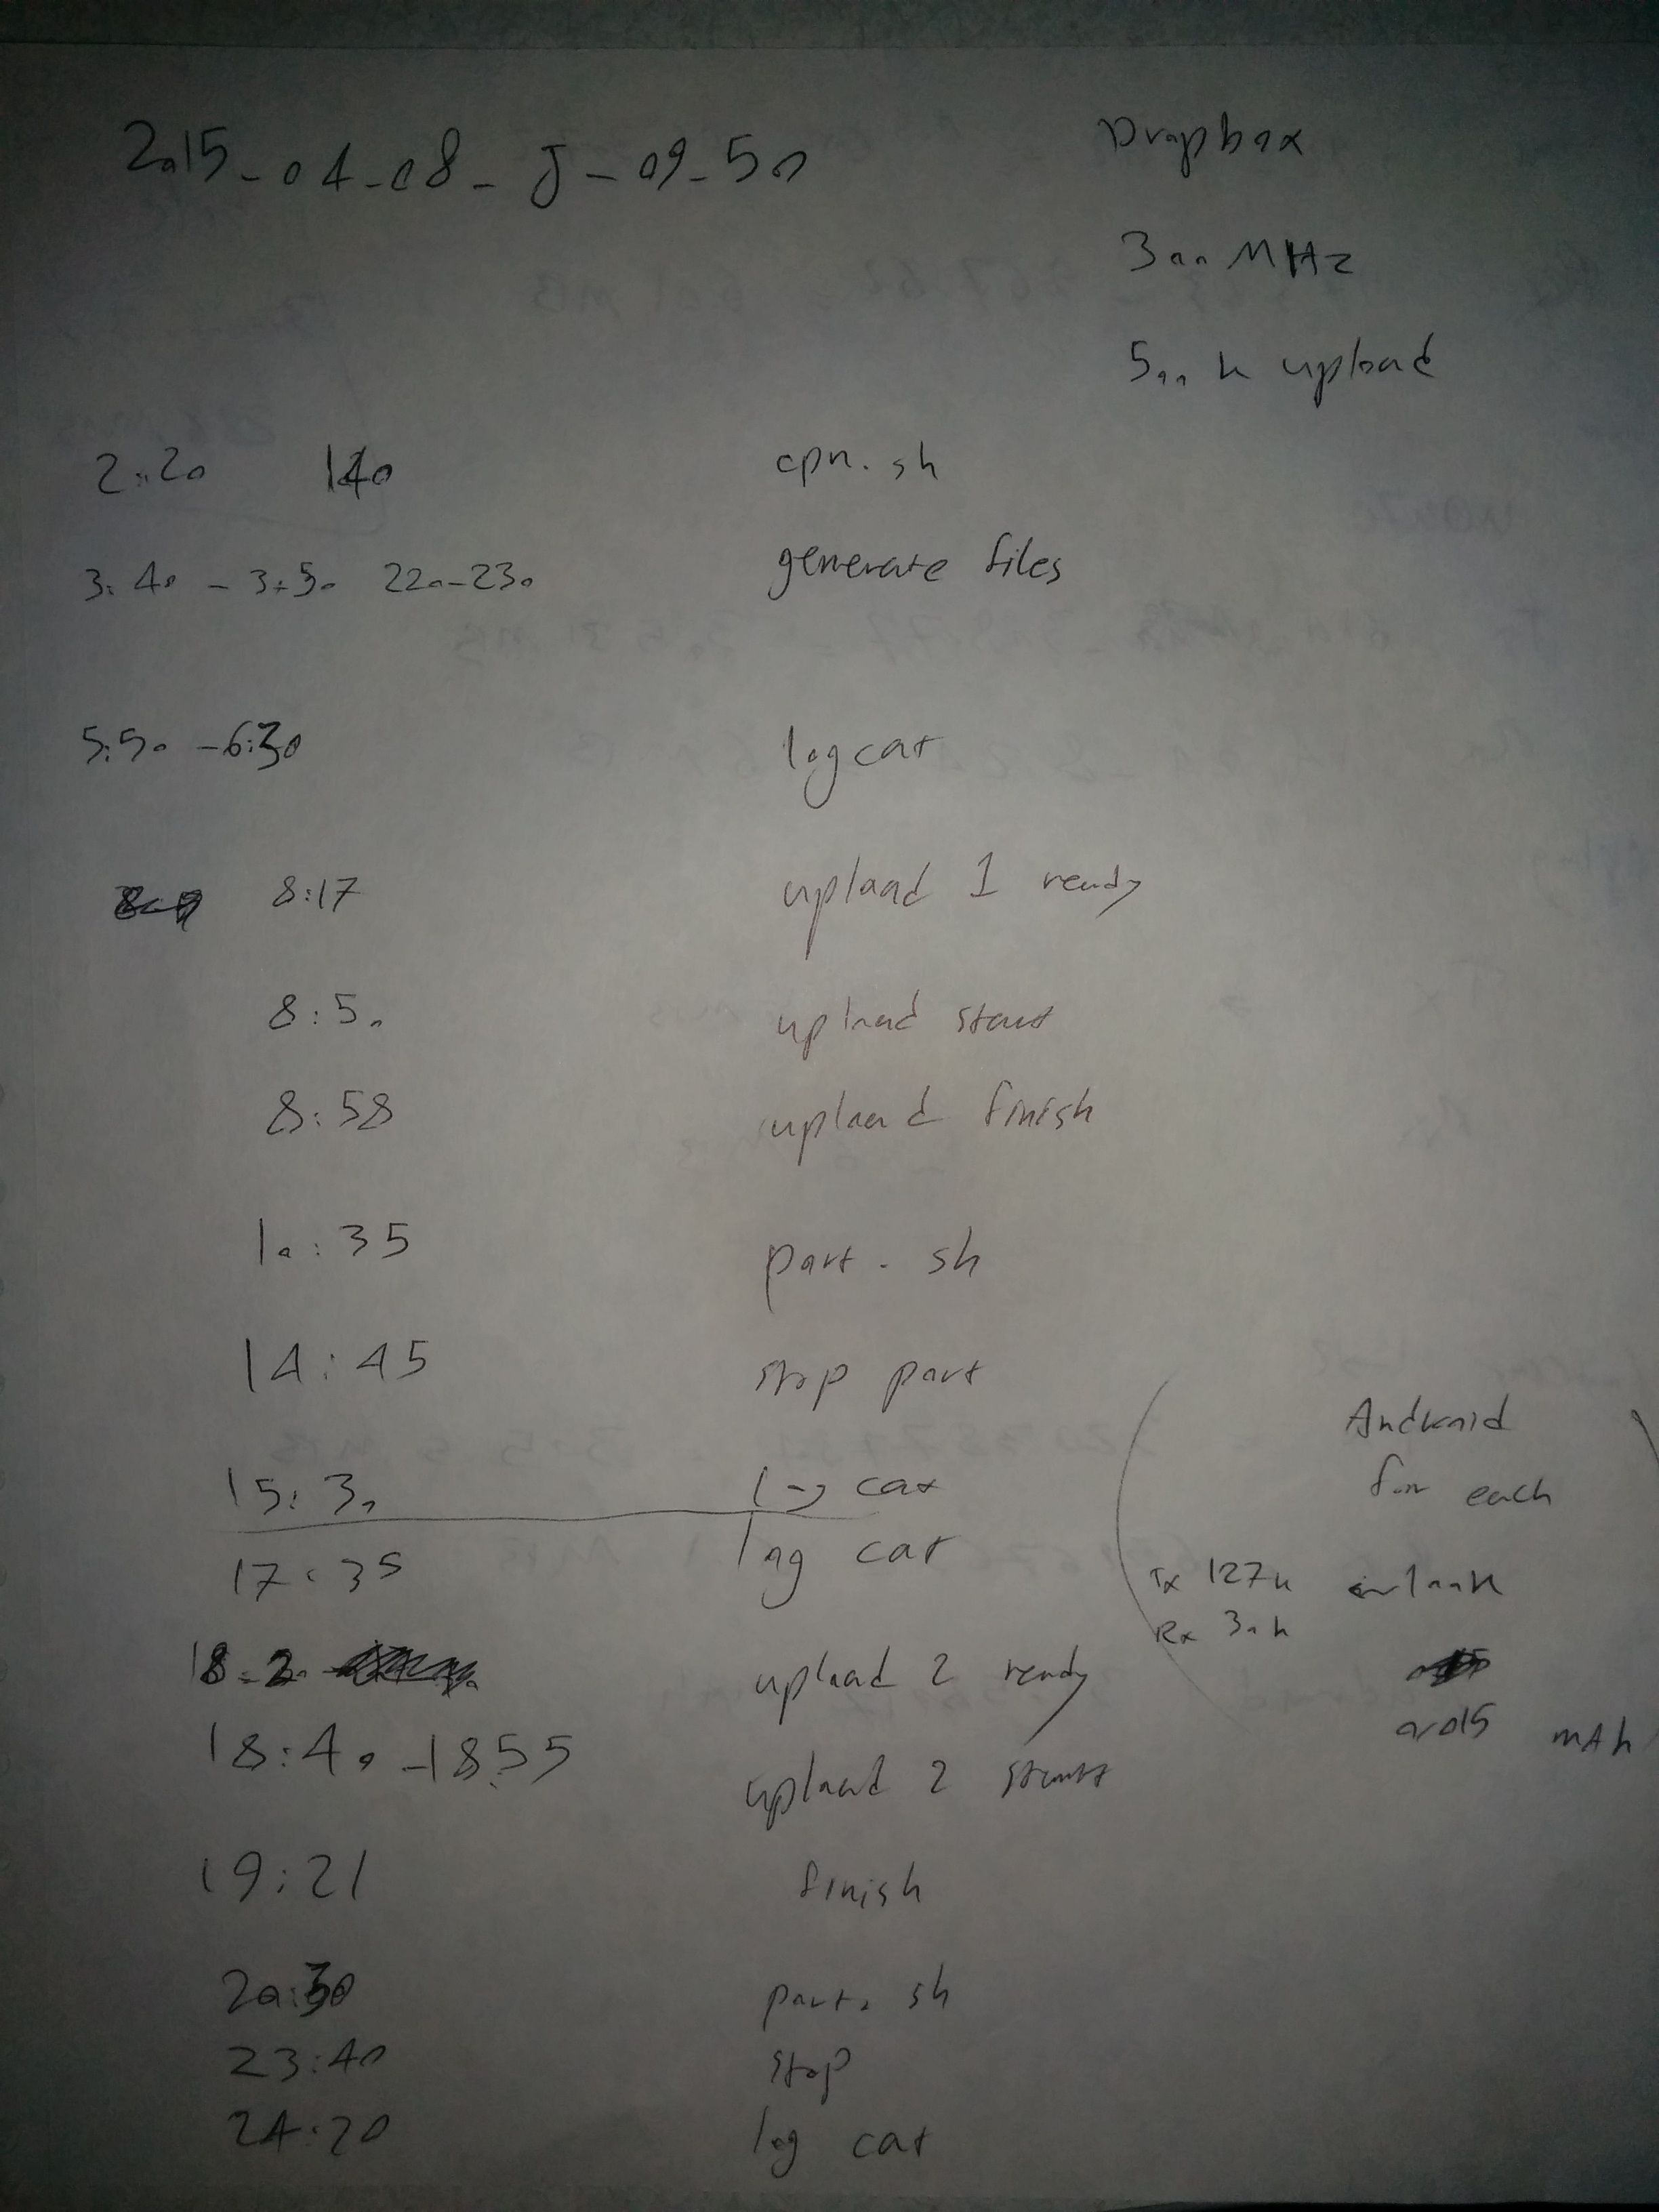 2015-04-08-J-09-50
Dropbox
300 MHz
500 k upload
2:20 140 cpn.sh
3:40 - 3:50 220-230 generate files
5:50 - 6:30 logcat
8:17 upload 1 ready
8:50 upload start
8:58 upload finish
10:35 part.sh
14:45 stop part
15:30 log cat
17:35 log cat
18:20 upload 2 ready
18:40 - 18:55 upload 2 start
19:21 finish
20:30 part.sh
23:40 stop
24:20 log cat
Android
for each
Tx 127k
Rx 30k
mAh